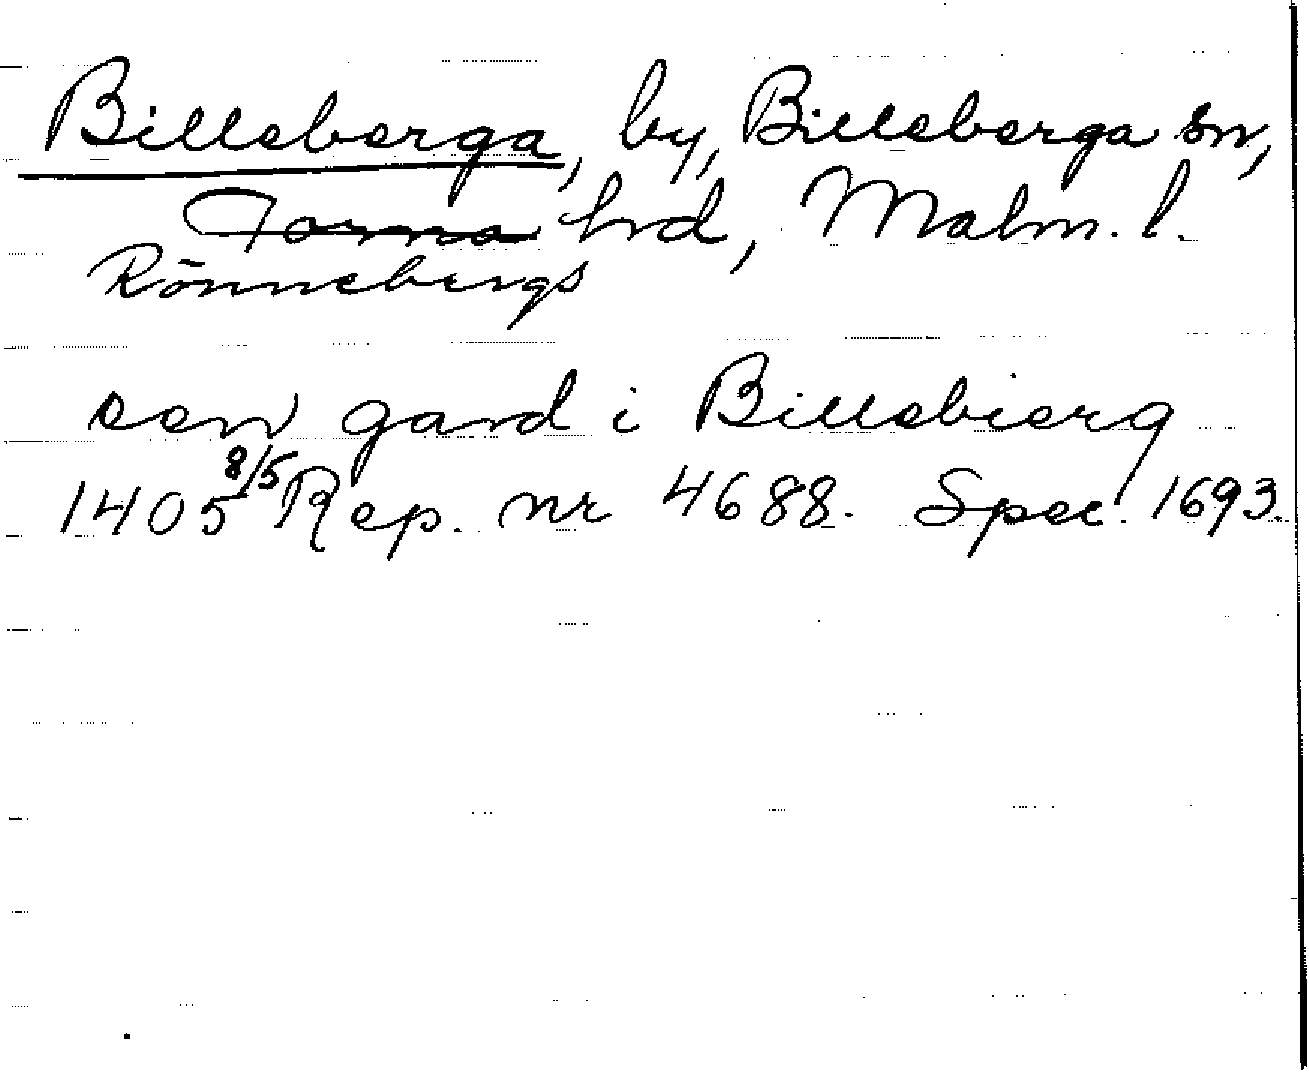 Billeberga, by, Billeberga sn,
Torna hd, Malm. l.
Rönnebergs
een gard i Billebierg
1405 8/5 Rep. nr 4688. Spec. 1693.